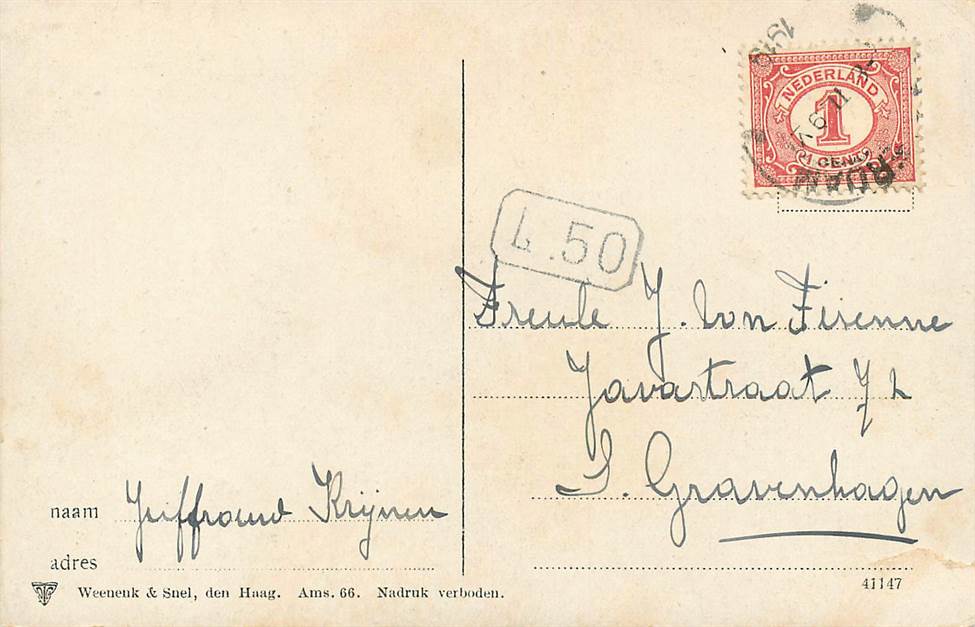 NEDERLAND
1
1 CENT
L.50
Freule J. von Fisenne
Javastraat 72
S. Gravenhagen
naam Juffrouw Krijnen
adres
Weenenk & Snel, den Haag. Ams. 66. Nadruk verboden.
41147